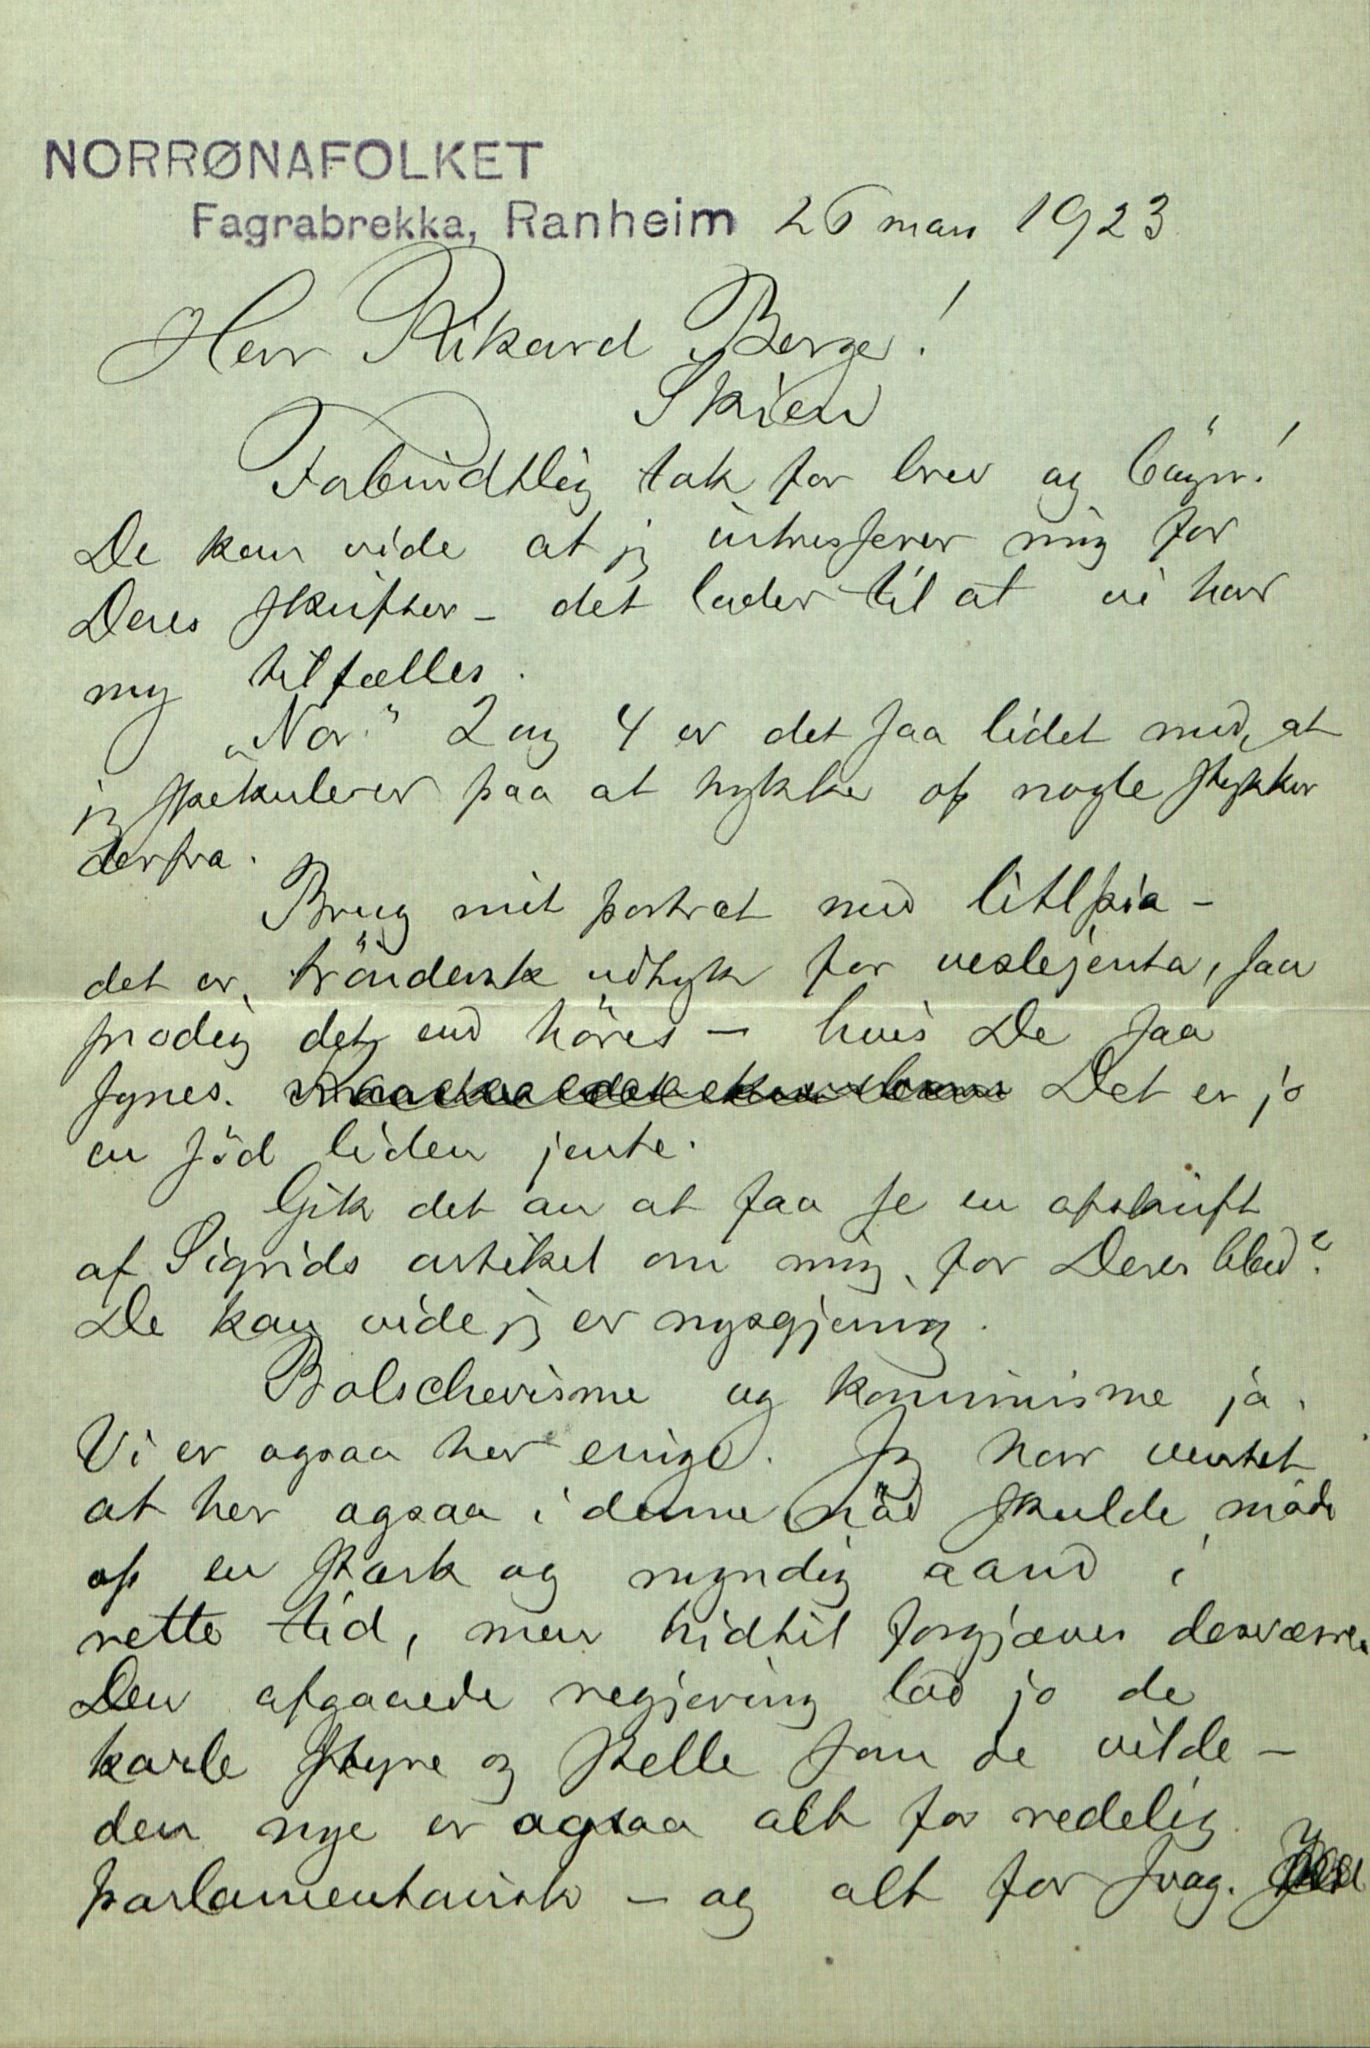 NORRØNAFOLKET
Fagrabrekka, Ranheim 26 mars 1923
Herr Rikard Berge!
Skien
Forbindtlig tak for brev og bøger!
De kan vide at jg intresserer mig for
Deres skrifter – det lader til at vi har
my tilfælles.
"Nor." 2 og 4 er det saa lidet med, at
jg spekulerer paa at trykke op nogle stykker
derfra.
Brug mit portræt med litlþia –
det er tröndersk udtryk for veslejenta, saa
frodig det end höres – hvis De saa
synes. Det er jo
en söd liden jente.
Gik det an at faa se en afskrift
af Sigrids artikel om mig, for Deres blad?
De kan vide jg er nysgjerrig.
Bolschevisme og kommisme ja.
Vi er ogsaa her enige. Jg har ventet
at her ogsaa i denne nöd skulde möde
op en stærk og myndig aand i
rette tid, men hidtil forgjæves desværre.
Den afgaaede regjering lod jo de
karle styre og stelle som de vilde –
den nye er ogsaa alt for redelig
parlamentarisk – og alt for svag.